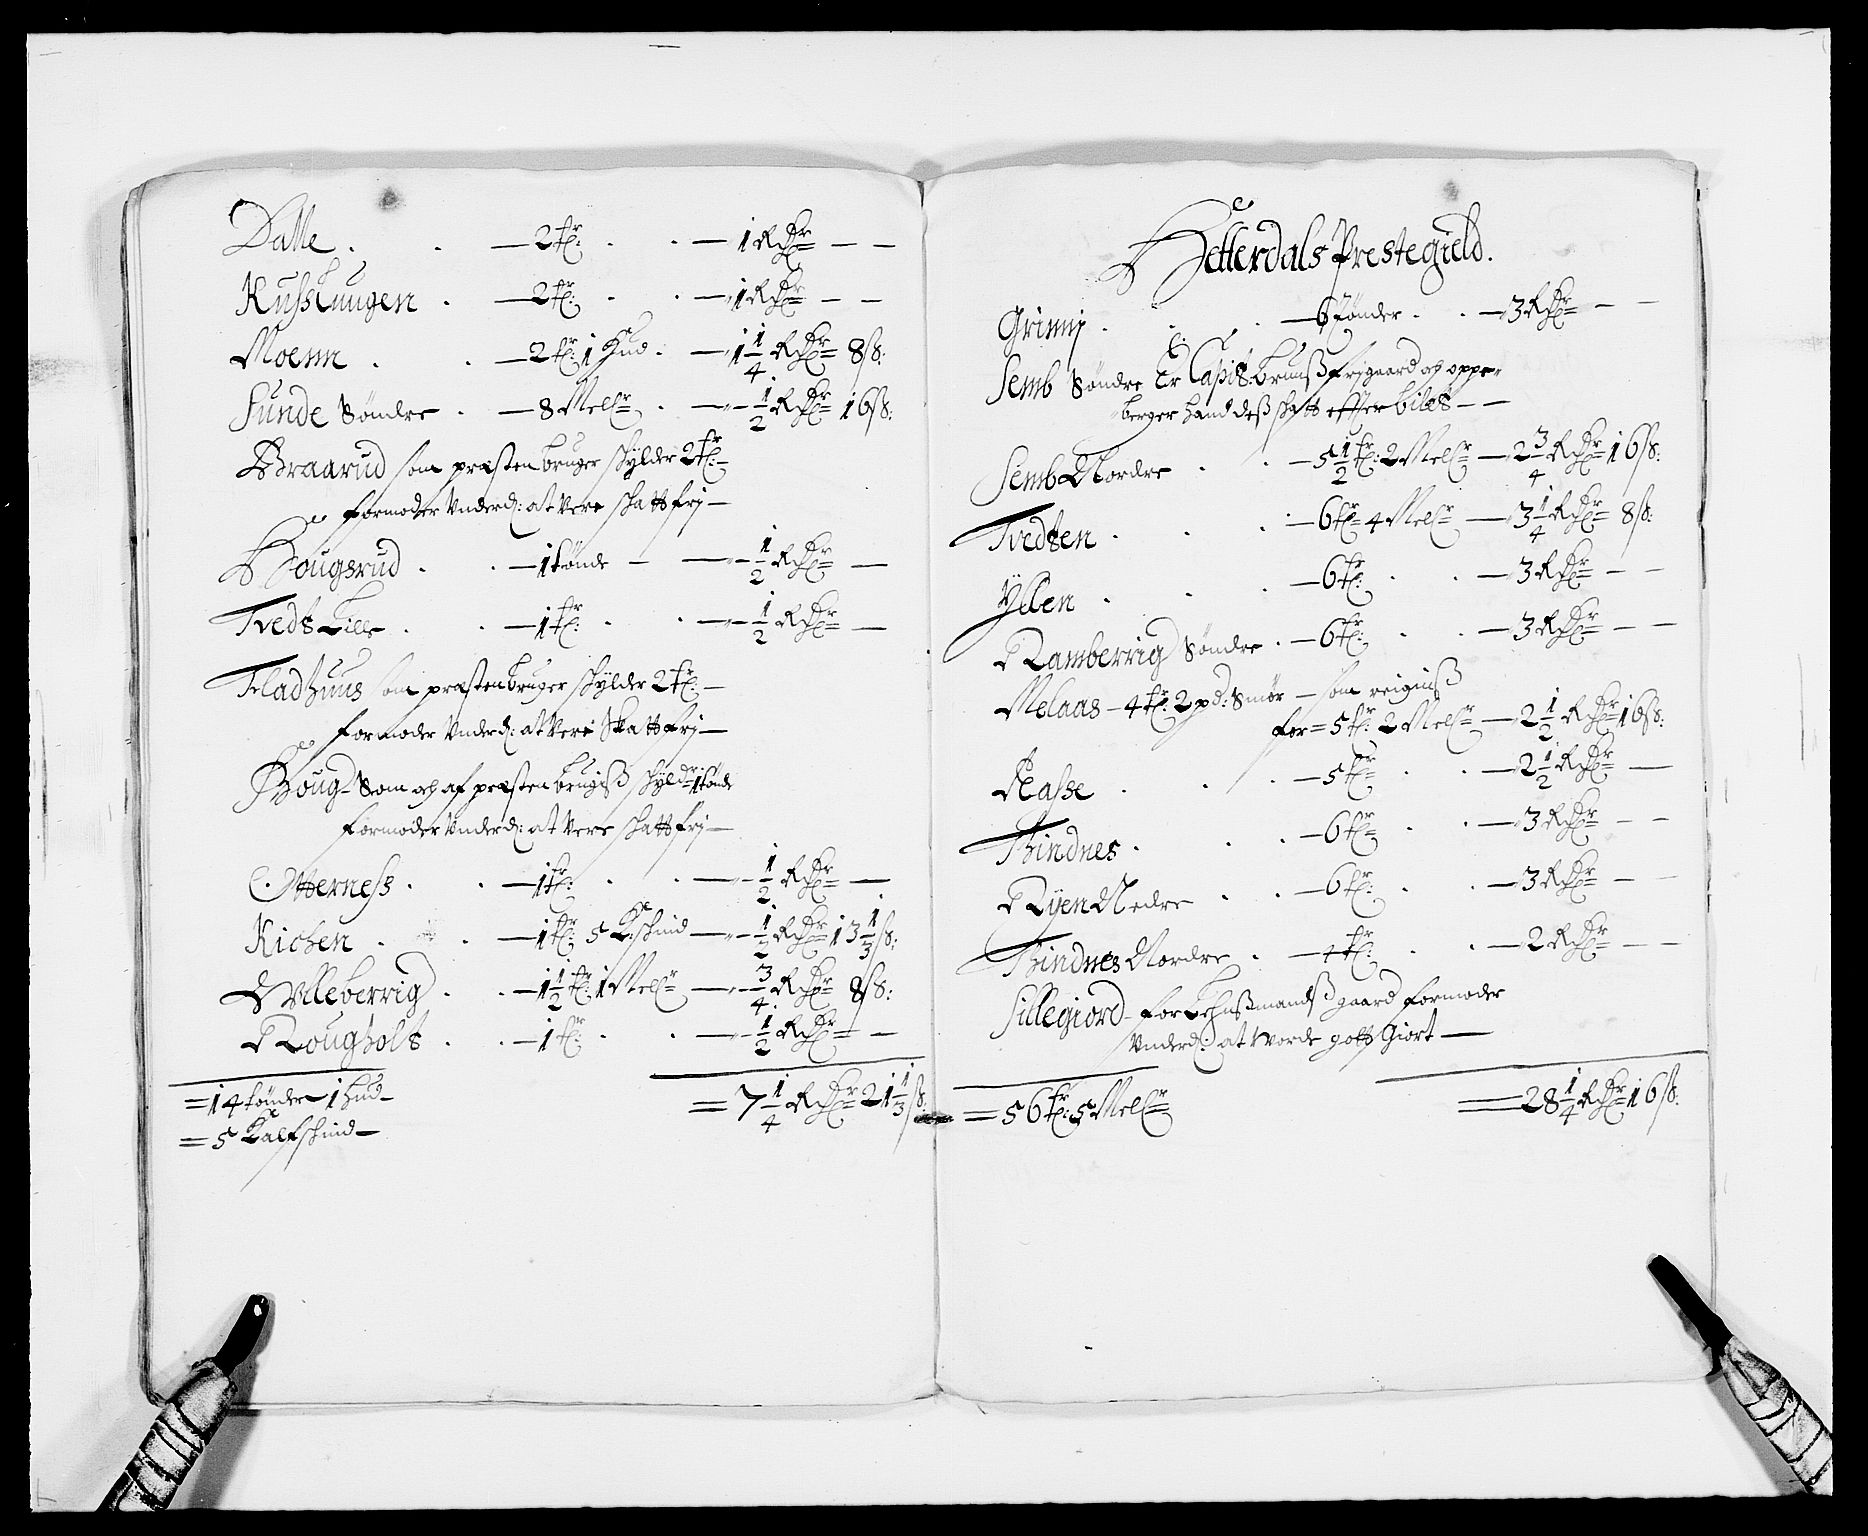 Dalle . . — 2 tr: . . — 1 Rdr — —
Kusslaugen . — 2 tr: . . — 1 Rdr — —
Moenn . . — 2 tr: 1 Hud . — 1 1/4 Rdr 8 s:
Sunde Søndre . — 8 Meler . — 1/2 Rdr 16 s:
Braarud som præsten bruger schylder 2 tr: —
formoder Underd: at vere schatt frj —
Hougsrud . . — 1 tønde — — 1/2 Rdr —
Tvedt Lille . . — 1 tr: . . — 1/2 Rdr —
Fladhuus som præsten bruger schylder 2 tr: —
formoder Underd: at vere Skatt frj —
Houg — Som och af præsten brugiss schyldr 1 tønde
formoder Underd: at vere schatt frj —
Otterness . . — 1 tr: . . — 1/2 Rdr —
Kichen . . — 1 tr: 5 K:schind — 1/2 Rdr 13 1/3 s:
Ulleberrig . . — 1 1/2 tr: 1 Meler — 3/4 Rdr 8 s:
Rougholt . . — 1 tr: . . — 1/2 Rdr —
= 14 tønder 1 Hud — = 7 1/4 Rdr 21 1/3 s:
= 5 Kalfschind —
Hetterdals Prestegield.
Grimj . . . — 6 Tønder . . — 3 Rdr — —
Semb Søndre Er Capit: Bruuss frjgaard och oppe-
berger hand dess schatt effter bilet — —
Semb Nordre . . — 5 1/2 tr: 2 Meler — 2 3/4 Rdr 16 s:
Tvedten . . . — 6 tr 4 Meler — 3 1/4 Rdr 8 s:
Yllen . . . — 6 tr: . . — 3 Rdr — —
Ramberrig Søndre . — 6 tr: . . — 3 Rdr — —
Melaas — 4 tr: 2 pd: Smør — som reigniss
for = 5 tr: 2 Meler — 2 1/2 Rdr 16 s:
Aasse . . . — 5 tr . . — 2 1/2 Rdr —
Bindnes . . . — 6 tr . . — 3 Rdr — —
Ryen Nedre . . — 6 tr: . . — 3 Rdr — —
Bindnes Nordre . — 4 tr: . . — 2 Rdr — —
Sillegiord — for Lehnssmandss gaard formoder
Underd: at vorde gott Giort —
= 56 tr: 5 Meler = 28 1/4 Rdr 16 s: